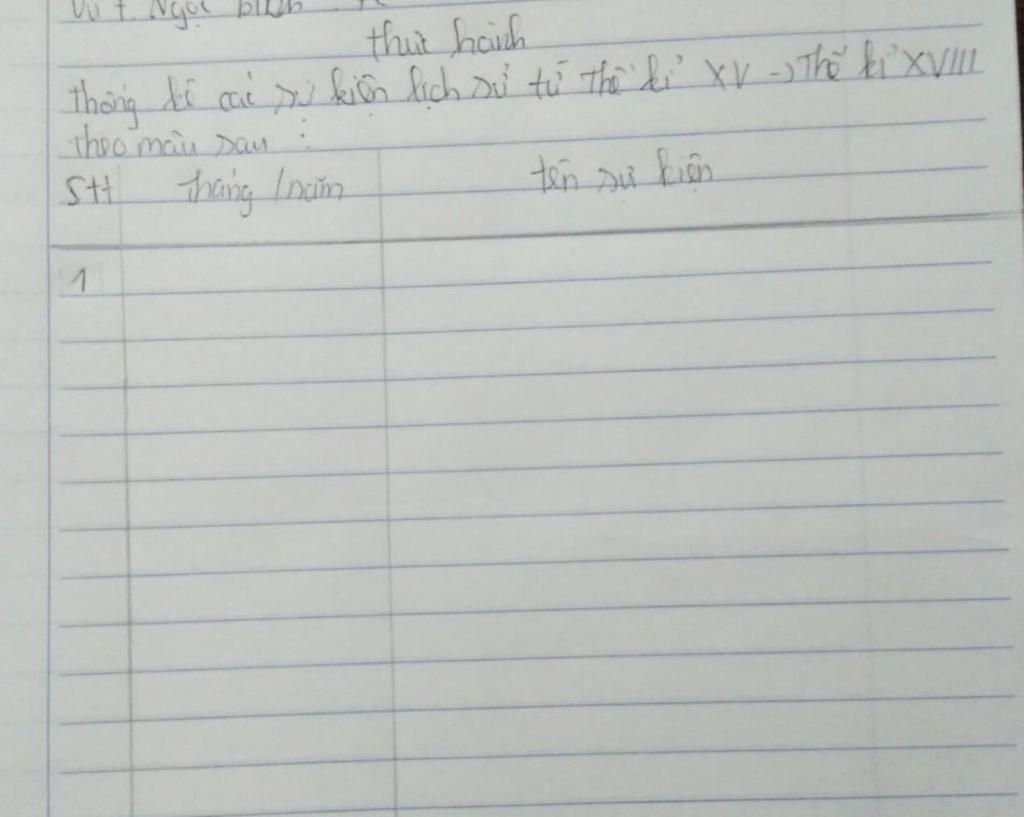 thực hành
thống kê các sự kiện lịch sử từ thế kỉ XV → Thế kỉ XVIII
theo mẫu sau :
Stt tháng / năm tên sự kiện
1